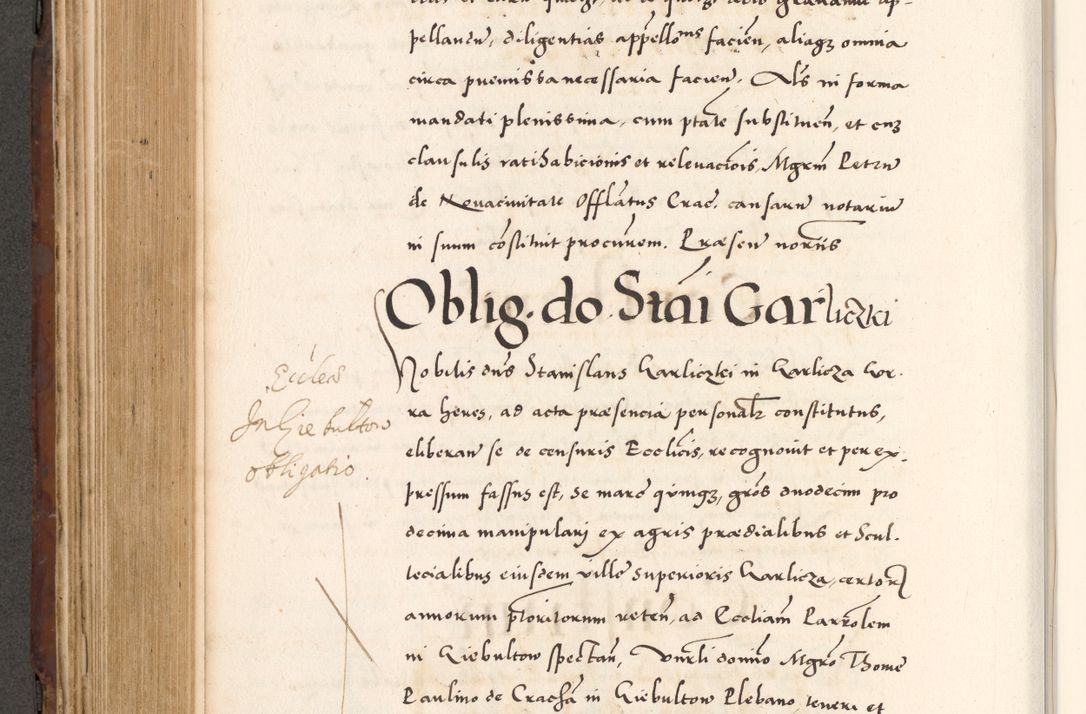 pellandū, diligentias appellon̄s facieñ, aliaqꝫ omnia
circa præmissa necessaria facieñ. Als̄ in forma
mandati plenissima, cum ptāte substitueñ, et cuꝫ
clausulis ratihabicionis et relevaciōis, Mgrm̄ Petrū
de Novacivitate Offlātus Crac̄. causarū notariū
in suum cōstituit procurem. Præsen̄
Oblig. do. Stāi Garliczki
Nobilis dn̄s Stanislaus Garliczki in Garlicza
ra heres, ad acta præsencia personalꝛ constitutus,
eliberan̄ se de censuris Ecclīcis, recognovit et per ex-
pressum fassus est, se marc̄ qvinqꝫ, gros̄ duodecim pro
decima manipulari ex agris prædialibus et Scul-
tecialibus eiusdem villæ superioris Garlicza, certorꝝ
annorum p̄toritorum reten̄, ad Eccliam̄ Parrōlem
in Giebultow spectan̄, Vnrl̄i domino Mgrō Thome
Paulino de Crac̄ in Giebultow Plebano, teneri et
Eccleæ
In Giebultow
obligatio.